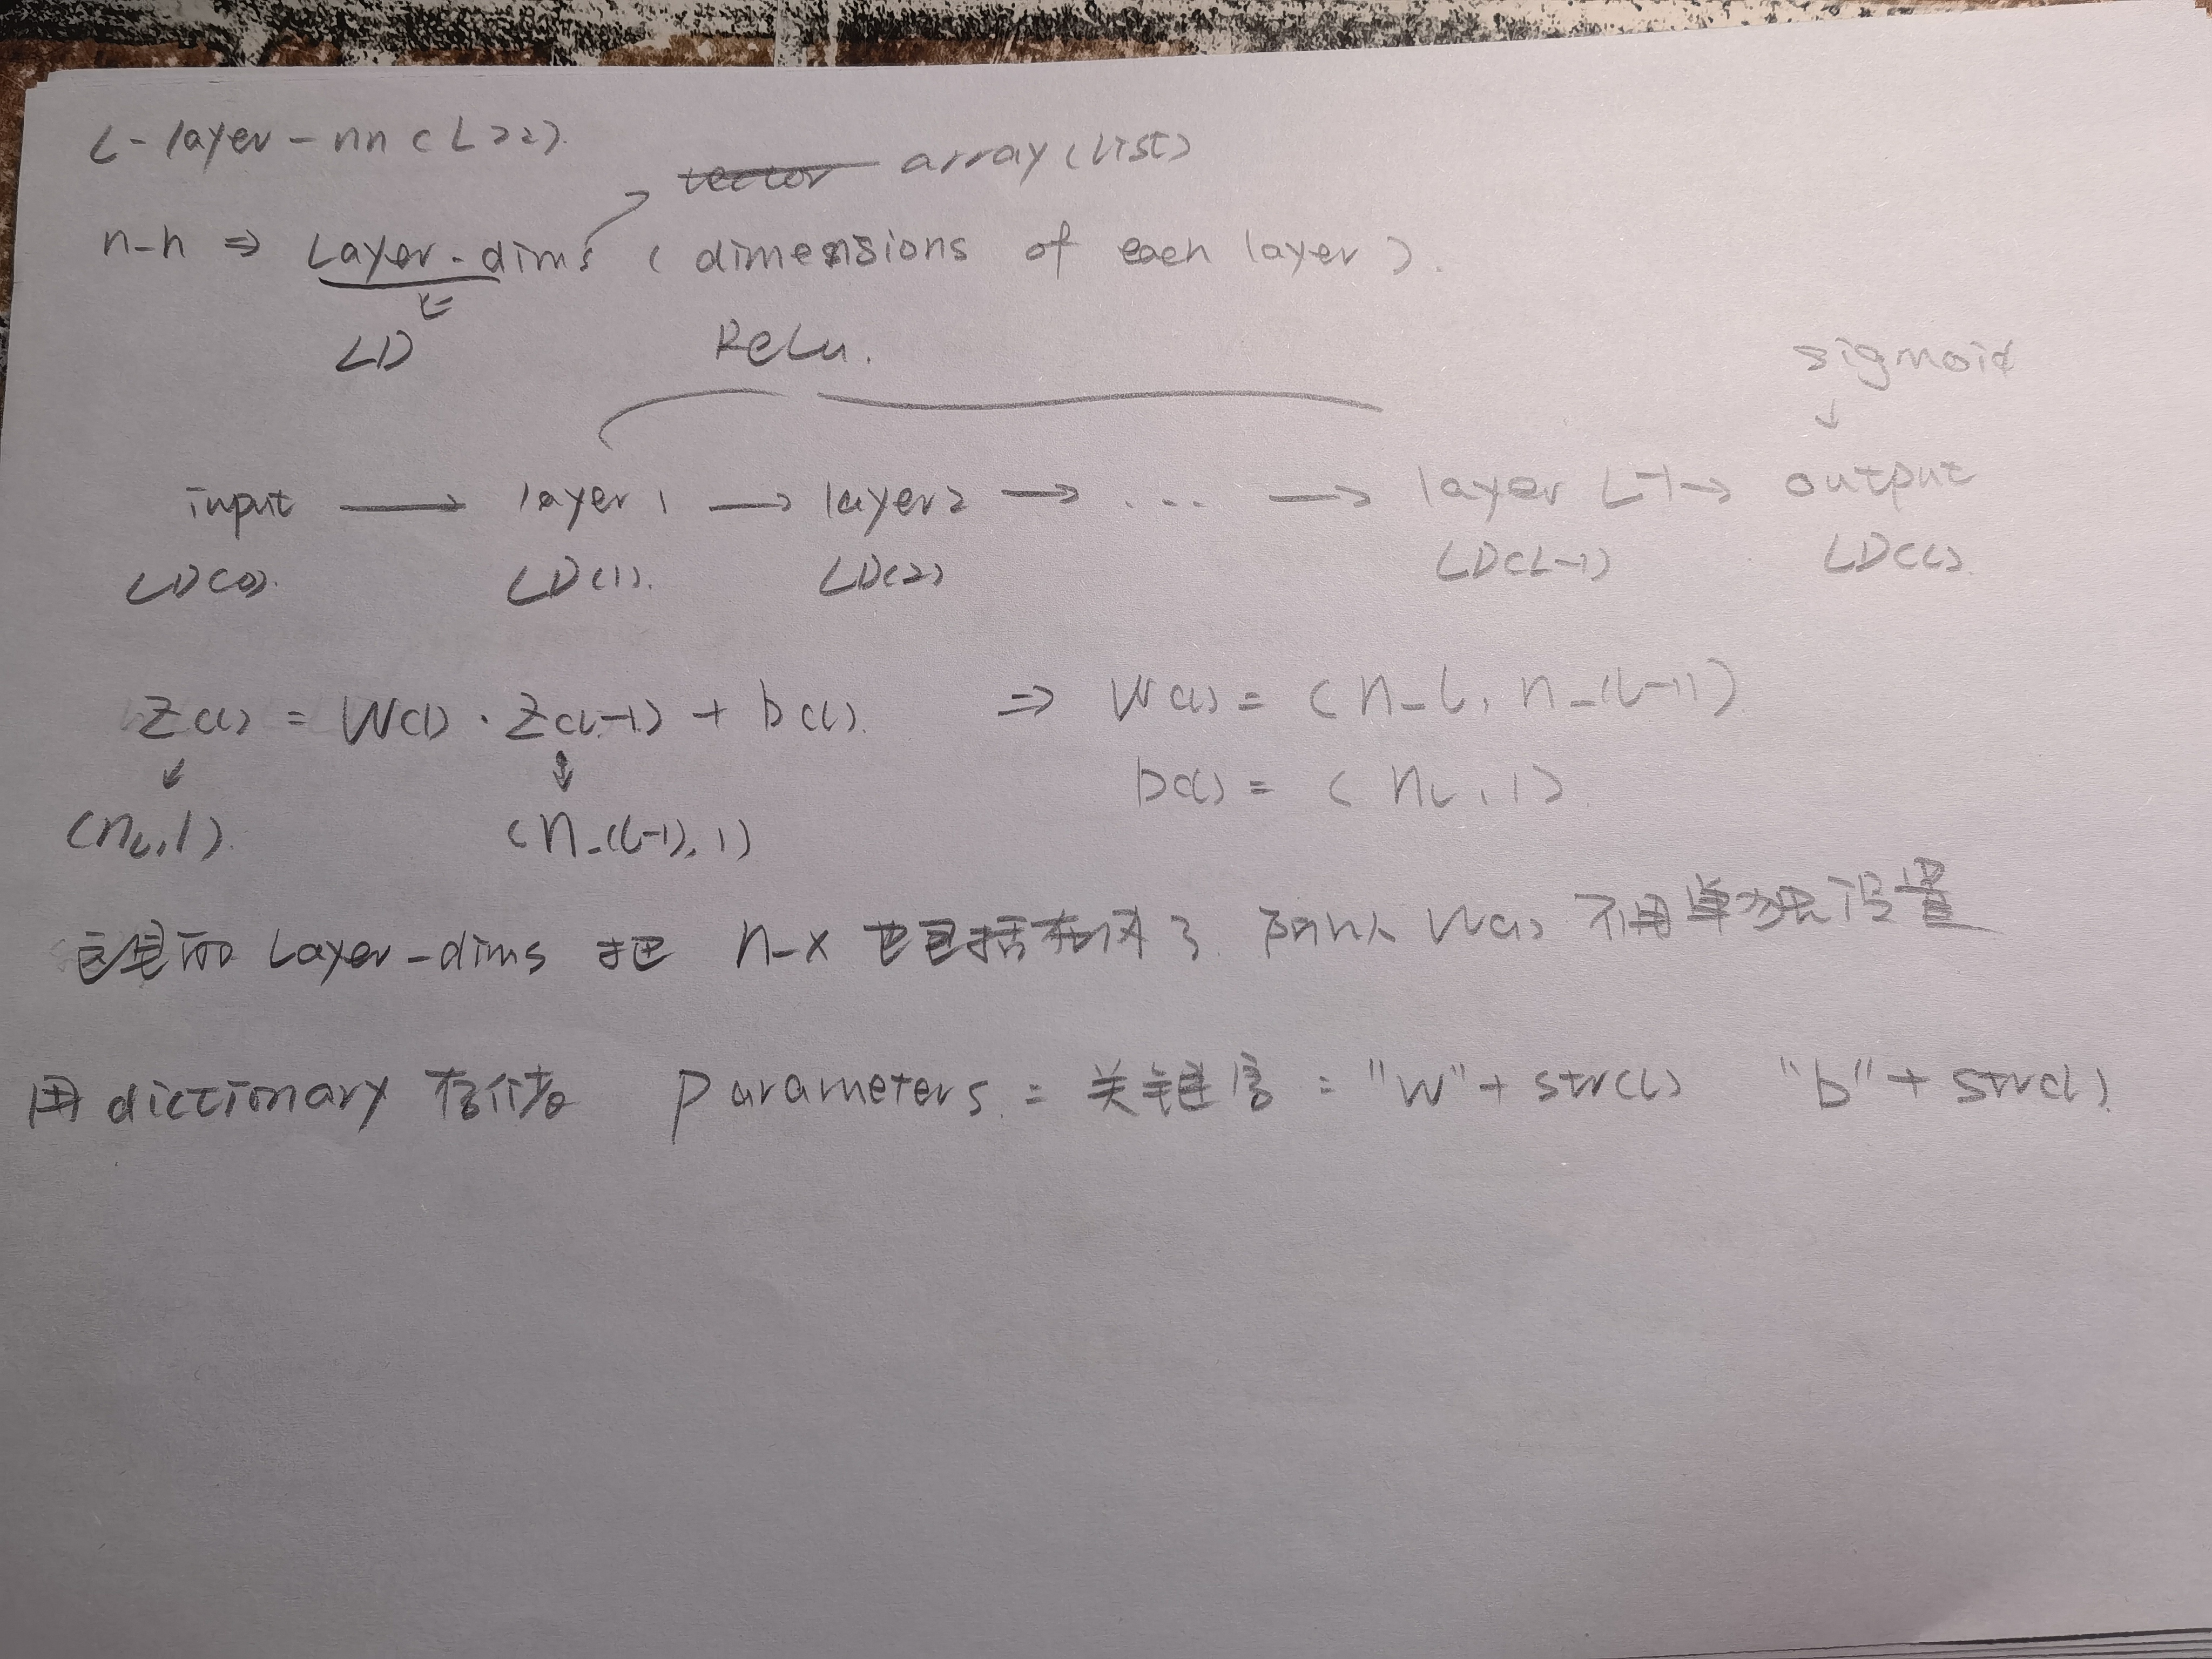 L-layer-nn (L>2).
vector array (list)
n-h ⇒ Layer-dims (dimensions of each layer).
LD
ReLu.
sigmoid
↓
input → layer 1 → layer 2 → ... → layer L-1 → output
LD(0). LD(1). LD(2) LD(L-1) LD(L).
Z(l) = W(l) · Z(l-1) + b(l). ⇒ W(l) = (n_l, n_(l-1))
b(l) = (nl, 1).
(nl, 1). (n_(l-1), 1)
这里的 Layer-dims 把 n-x 也包括在内了. 所以 W(1) 不用单独设置
用 dictionary 存储 parameters. = 关键字 = "W" + str(l) "b" + str(l)